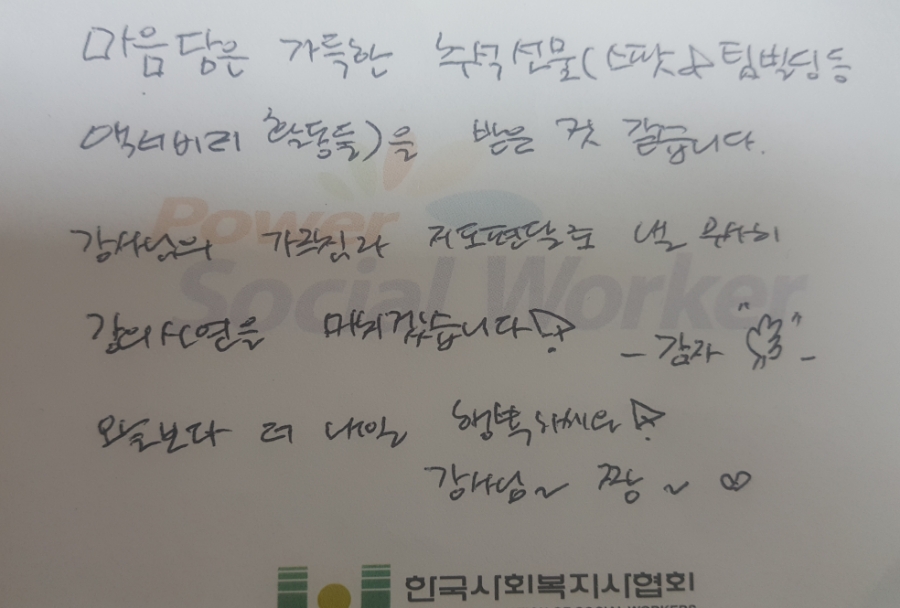 마음담은 가득한 추석선물(스팟&팀빌딩등
액티비티 활동들)을 받은 것 같습니다.
Power
강사님의 가르침과 지도편달로 낼 무사히
Social Worker
강의시연을 마치겠습니다!
-감자 " "-
오늘보다 더 내일 행복하세요!
강사님~ 짱~ ♡
한국사회복지사협회